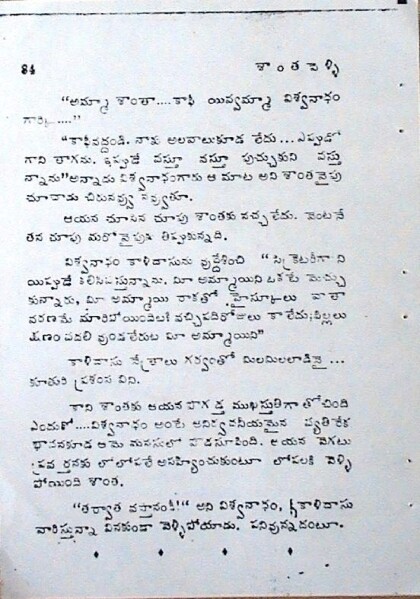 84 శాంత పెళ్ళి
"అమ్మా శాంతా....కాఫీ యివ్వమ్మా విశ్వనాధం
గార్కి...."
"కాఫీవద్దండి. నాకు అలవాటుకూడ లేదు...ఎప్పుడో
గాని తాగను. ఇప్పుడే వస్తూ వస్తూ పుచ్చుకుని వస్తు
న్నాను" అన్నారు విశ్వనాధంగారు ఆ మాట అని శాంత వైపు
చూచాడు చిరునవ్వు నవ్వుతూ.
ఆయన చూసిన చూపు శాంతకు నచ్చలేదు. వెంటనే
తన చూపు మరో వైపుకి తిప్పుకున్నది.
విశ్వనాధం కాళిదాసును వుద్దేశించి "సెక్రెటరీగారిని
యిప్పుడే కలిసివస్తున్నాను. మీ అమ్మాయిని ఒకటే మెచ్చు
కున్నారు, మీ అమ్మాయి రాకతో హైస్కూలు వాతా
వరణమే మారిపోయిందిట! వచ్చిపదిరోజులు కాలేదు; పిల్లలు
క్షణం వదలి వుండలేరుట మీ అమ్మాయిని"
కాళిదాసు నేత్రాలు గర్వంతో మిలమిలలాడినై...
కూతురి ప్రశంస విని.
కాని శాంతకు ఆయన పొగడ్త ముఖస్తుతిగా తోచింది
ఎందుకో....విశ్వనాధం అంటే అనిర్వచనీయమైన వ్యతిరేక
భావనకూడ ఆమె మనసులో పొడసూపింది. ఆయన వెగటు
ప్రవర్తనకు లోలోపలే అసహ్యించుకుంటూ లోపలకి వెళ్ళి
పోయింది శాంత.
"తర్వాత వస్తానండీ!" అని విశ్వనాధం, కాళిదాసు
వారిస్తున్నా వినకుండా వెళ్ళిపోయాడు. పనివున్నదంటూ.